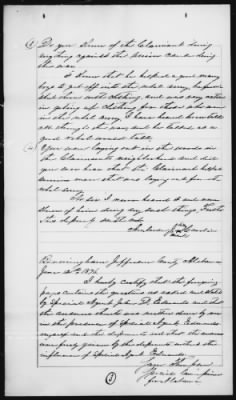 Do you know of the Claimant doing
anything against the union cause during
the war
I know that he helped a good many
boys to get off into the rebel army, he furnished
them with clothing, and was very active
in getting up clothing for those who were
in the rebel army, I have heard him talk
all through the war and he talked as a
good rebel would talk,
You were laying out in the woods in
the Claimants neighborhood and did
you ever hear that the Claimant helped
union men that were laying out from the
rebel army
No sir I never heard it and never
knew of him doing any such things, Further
this deponent saith not
Birmingham Jefferson County Alabama
June 20th 1876
I hereby certify that the foregoing
pages contains the questions as asked and stated
by Special Agent John D. Edwards and that
the answers thereto are written down by me
in the presence of Special Agent Edwards
myself and the deponents and that the answers
were freely given by the deponents without the
influence of Special Agent Edwards
Special Com
for Alabama